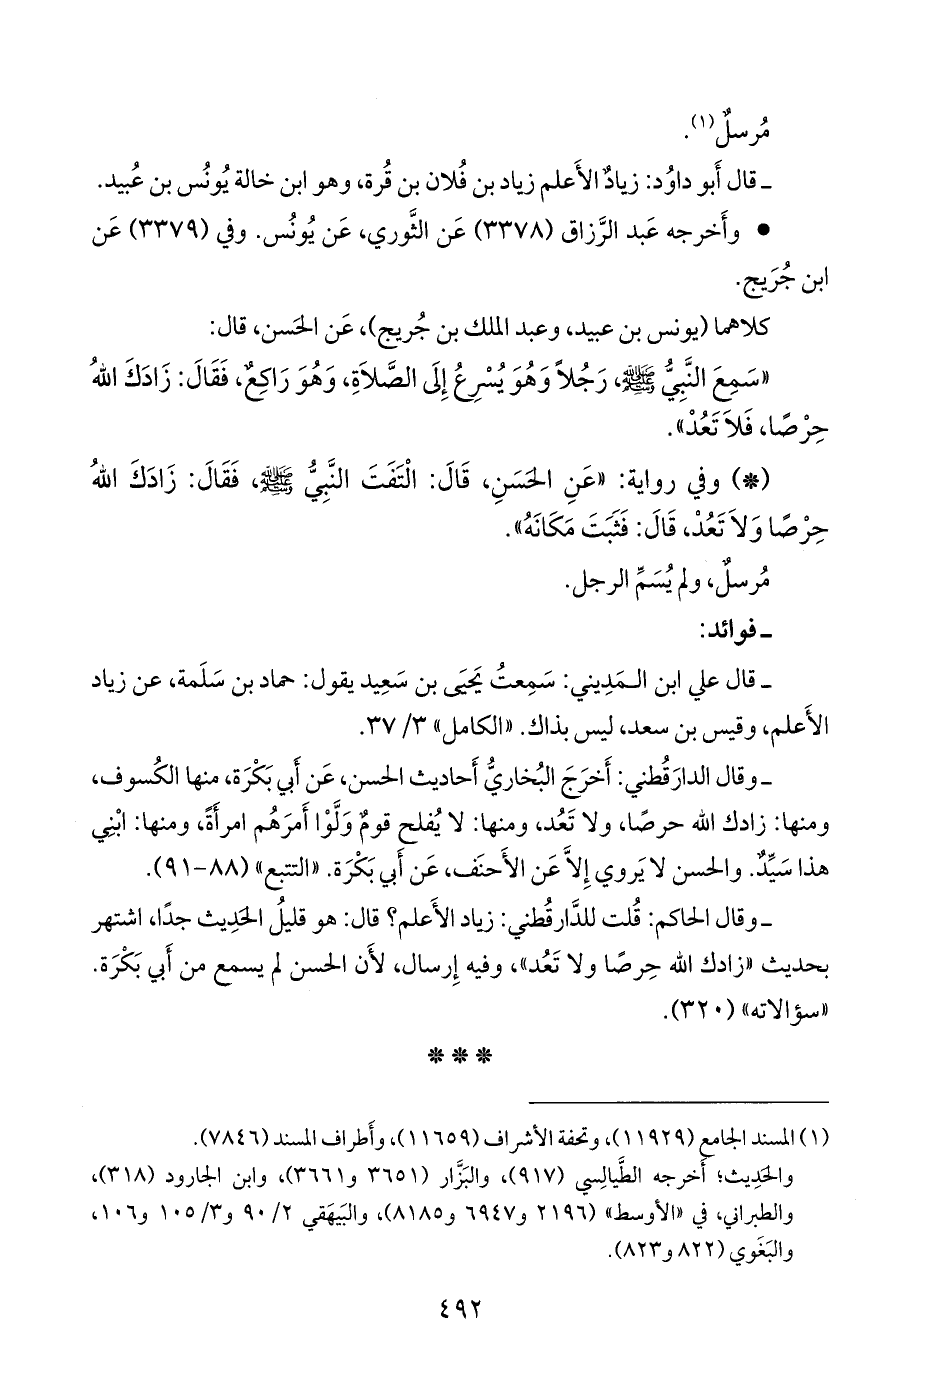 مُرسلٌ (١).
ـ قال أَبو داوُد: زيادٌ الأَعلم زياد بن فُلان بن قُرة، وهو ابن خالة يُونُس بن عُبيد.
● وأَخرجه عَبد الرَّزاق (٣٣٧٨) عَن الثَّوري، عَن يُونُس. وفي (٣٣٧٩) عَن
ابن جُرَيج.
كلاهما (يونس بن عبيد، وعبد الملك بن جُريج)، عَن الحَسن، قال:
«سَمِعَ النَّبِيُّ ﷺ، رَجُلاً وَهُوَ يُسْرِعُ إِلَى الصَّلاَةِ، وَهُوَ رَاكِعٌ، فَقَالَ: زَادَكَ اللهُ
حِرْصًا، فَلاَ تَعُدْ».
(*) وفي رواية: «عَنِ الحَسَنِ، قَالَ: الْتَفَتَ النَّبِيُّ ﷺ، فَقَالَ: زَادَكَ اللهُ
حِرْصًا وَلاَ تَعُدْ، قَالَ: فَثَبَتَ مَكَانَهُ».
مُرسلٌ، ولم يُسَمِّ الرجل.
ـ فوائد:
ـ قال علي ابن الـمَدِيني: سَمِعتُ يَحيَى بن سَعِيد يقول: حماد بن سَلَمة، عن زياد
الأَعلم، وقيس بن سعد، ليس بذاك. «الكامل» ٣/ ٣٧.
ـ وقال الدارقُطني: أَخرَجَ البُخاريُّ أَحاديث الحسن، عَن أَبي بَكْرَة، منها الكُسوف،
ومنها: زادك الله حرصًا، ولا تَعُد، ومنها: لا يُفلح قومٌ وَلَّوْا أَمرَهُم امرأَةً، ومنها: ابْنِي
هذا سَيِّدٌ. والحسن لا يَروي إِلاَّ عَن الأَحنَف، عَن أَبي بَكْرَة. «التتبع» (٨٨-٩١).
ـ وقال الحاكم: قُلت للدَّارقُطني: زياد الأَعلم؟ قال: هو قليلُ الحَدِيث جدًا، اشتهر
بحديث «زادك الله حِرصًا ولا تَعُد»، وفيه إِرسال، لأَن الحسن لم يسمع من أَبي بَكْرَة.
«سؤالاته» (٣٢٠).
* * *
(١) المسند الجامع (١١٩٢٩)، وتحفة الأَشراف (١١٦٥٩)، وأَطراف المسند (٧٨٤٦).
والحَدِيث؛ أَخرجه الطَّيالِسي (٩١٧)، والبَزَّار (٣٦٥١ و٣٦٦١)، وابن الجارود (٣١٨)،
والطبراني، في «الأَوسط» (٢١٩٦ و٦٩٤٧ و٨١٨٥)، والبَيهَقي ٢/ ٩٠ و٣/ ١٠٥ و١٠٦،
والبَغَوي (٨٢٢ و٨٢٣).
٤٩٢